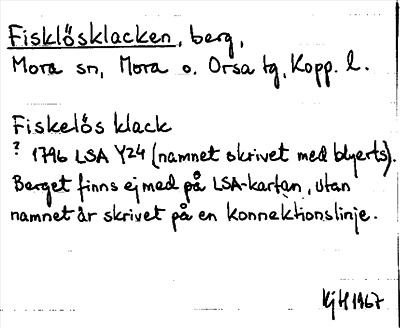 Fisklösklacken, berg,
Mora sn, Mora o. Orsa tg, Kopp. l.
Fiskelös klack
? 1796 LSA Y24 (namnet skrivet med blyerts).
Berget finns ej med på LSA-kartan, utan
namnet är skrivet på en konnektionslinje.
KjH 1967